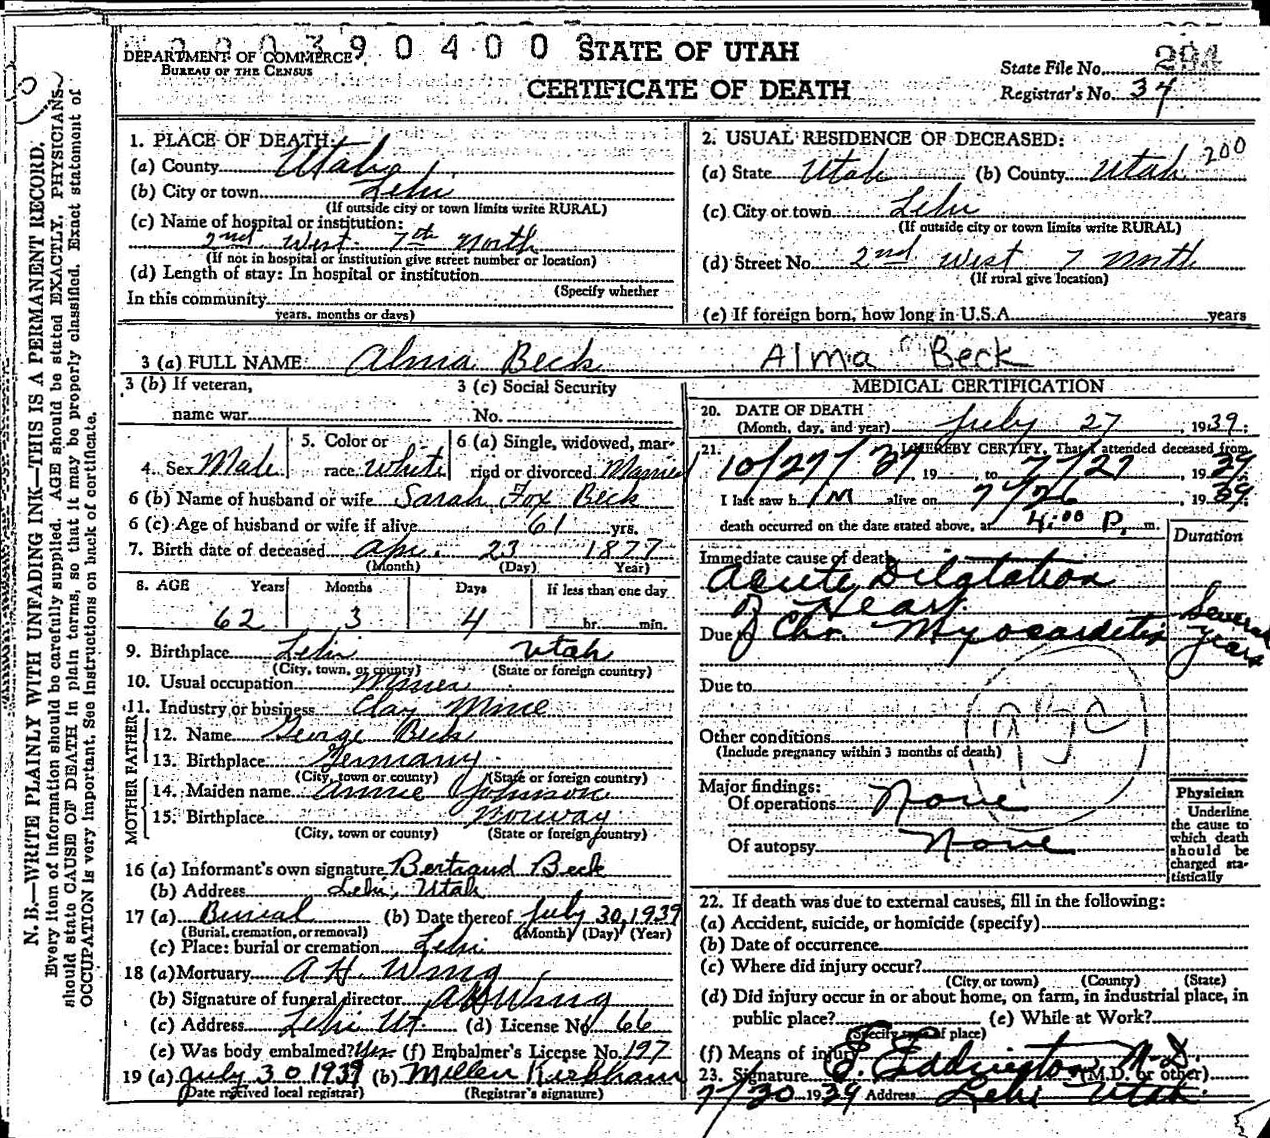 9 0 4 0 0
STATE OF UTAH
CERTIFICATE OF DEATH
DEPARTMENT OF COMMERCE
BUREAU OF THE CENSUS
State File No. 294
Registrar's No. 34
N. B.—WRITE PLAINLY WITH UNFADING INK—THIS IS A PERMANENT RECORD.
Every item of information should be carefully supplied. AGE should be stated EXACTLY. PHYSICIANS
should state CAUSE OF DEATH in plain terms, so that it may be properly classified. Exact statement of
OCCUPATION is very important. See instructions on back of certificate.
1. PLACE OF DEATH:
(a) County Utah
(b) City or town Lehi
(If outside city or town limits write RURAL)
(c) Name of hospital or institution:
2nd West 7th North
(If not in hospital or institution give street number or location)
(d) Length of stay: In hospital or institution
(Specify whether
In this community
years, months or days)
2. USUAL RESIDENCE OF DECEASED:
200
(a) State Utah (b) County Utah
(c) City or town Lehi
(If outside city or town limits write RURAL)
(d) Street No. 2nd West 7 North
(If rural give location)
(e) If foreign born, how long in U.S.A. years
3 (a) FULL NAME Alma Beck Alma Beck
3 (b) If veteran,
name war
3 (c) Social Security
No.
4. Sex Male
5. Color or
race White
6 (a) Single, widowed, mar-
ried or divorced Married
6 (b) Name of husband or wife Sarah Fox Beck
6 (c) Age of husband or wife if alive 61 yrs.
7. Birth date of deceased Apr. 23 1877
(Month) (Day) Year)
8. AGE Years Months Days If less than one day
62 3 4 hr. min.
9. Birthplace Lehi Utah
(City, town, or county) (State or foreign country)
10. Usual occupation Miner
11. Industry or business Clay Mine
FATHER
12. Name George Beck
13. Birthplace Germany
(City, town or county) (State or foreign country)
MOTHER
14. Maiden name Annie Johnson
15. Birthplace Norway
(City, town or county) (State or foreign country)
16 (a) Informant's own signature Bertrand Beck
(b) Address Lehi, Utah
17 (a) Burial (b) Date thereof July 30, 1939
(Burial, cremation, or removal) (Month) (Day) (Year)
(c) Place: burial or cremation Lehi
18 (a) Mortuary A H. Wing
(b) Signature of funeral director A H Wing
(c) Address Lehi Ut. (d) License No. 66
(e) Was body embalmed? Yes (f) Embalmer's License No. 197
19 (a) July 30 1939 (b) Millen Kirkham
(Date received local registrar) (Registrar's signature)
MEDICAL CERTIFICATION
20. DATE OF DEATH
(Month, day, and year) July 27, 1939
21. I HEREBY CERTIFY, That I attended deceased from
10/27/37 19 , to 7/27 1939
I last saw h im alive on 7/26 1939
death occurred on the date stated above, at 4:00 P. m.
Duration
Immediate cause of death
Acute Dilatation
of Heart
Due to Chr. Myocarditis Several years
Due to
Other conditions
(Include pregnancy within 3 months of death)
Major findings:
Of operations None
Of autopsy None
Physician
Underline
the cause to
which death
should be
charged sta-
tistically
22. If death was due to external causes, fill in the following:
(a) Accident, suicide, or homicide (specify)
(b) Date of occurrence
(c) Where did injury occur?
(City or town) (County) (State)
(d) Did injury occur in or about home, on farm, in industrial place, in
public place? (e) While at Work?
(Specify type of place)
(f) Means of injury
23. Signature E. Eddington, M.D. (M.D. or other)
7/30 1939 Address Lehi Utah